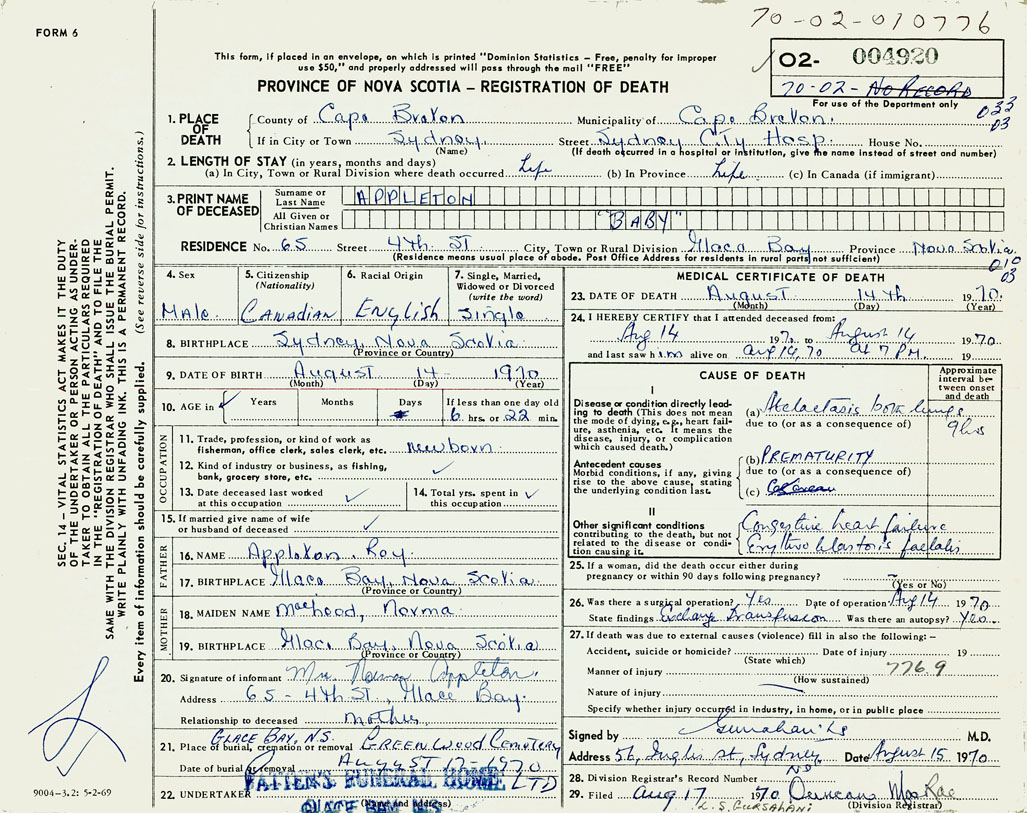 70-02-010776
FORM 6
This form, if placed in an envelope, on which is printed "Dominion Statistics – Free, penalty for improper
use $50," and properly addressed will pass through the mail "FREE"
02- 004920
PROVINCE OF NOVA SCOTIA – REGISTRATION OF DEATH
70-02- No RECORD
For use of the Department only
033
03
1. PLACE OF DEATH
County of Cape Breton Municipality of Cape Breton.
If in City or Town Sydney Street Sydney City Hosp. House No.
(Name) (If death occurred in a hospital or institution, give the name instead of street and number)
2. LENGTH OF STAY (in years, months and days)
(a) In City, Town or Rural Division where death occurred Life (b) In Province Life (c) In Canada (if immigrant)
3. PRINT NAME OF DECEASED
Surname or Last Name APPLETON
All Given or Christian Names "BABY"
RESIDENCE No. 65 Street 4th ST City, Town or Rural Division Glace Bay Province Nova Scotia
(Residence means usual place of abode. Post Office Address for residents in rural parts not sufficient)
010
03
4. Sex Male
5. Citizenship (Nationality) CANADIAN
6. Racial Origin ENGlish
7. Single, Married, Widowed or Divorced (write the word) Single
8. BIRTHPLACE Sydney, Nova Scotia
(Province or Country)
9. DATE OF BIRTH August 14 1970
(Month) (Day) (Year)
10. AGE in Years Months Days If less than one day old
6 hrs. or 22 min.
OCCUPATION
11. Trade, profession, or kind of work as
fisherman, office clerk, sales clerk, etc. newborn
12. Kind of industry or business, as fishing,
bank, grocery store, etc.
13. Date deceased last worked
at this occupation
14. Total yrs. spent in
this occupation
15. If married give name of wife
or husband of deceased
FATHER
16. NAME Appleton, Roy
17. BIRTHPLACE Glace Bay, Nova Scotia
(Province or Country)
MOTHER
18. MAIDEN NAME Norma
19. BIRTHPLACE Glace Bay, Nova Scotia
(Province or Country)
20. Signature of informant Mrs. Norma Appleton
Address 65 - 4th ST, Glace Bay.
Relationship to deceased mother
GLACE BAY, N.S.
21. Place of burial, cremation or removal GREENWOOD CEMETERY
Date of burial or removal AUGUST 17-1970
22. UNDERTAKER PATTEN'S FUNERAL HOME LTD
(Name and address)
GLACE BAY, N.S.
MEDICAL CERTIFICATE OF DEATH
23. DATE OF DEATH August 14th 1970
(Month) (Day) (Year)
24. I HEREBY CERTIFY that I attended deceased from:
Aug 14 1970 to August 14 1970
and last saw him alive on Aug 14, 70 at 7 PM. 19
CAUSE OF DEATH
Approximate interval between onset and death
I
Disease or condition directly leading to death (This does not mean the mode of dying, e.g., heart failure, asthenia, etc. It means the disease, injury, or complication which caused death.)
(a) Atelactasis both lungs
due to (or as a consequence of) 9 hrs
Antecedent causes
Morbid conditions, if any, giving rise to the above cause, stating the underlying condition last.
(b) PREMATURITY
due to (or as a consequence of)
(c)
II
Other significant conditions contributing to the death, but not related to the disease or condition causing it.
Congestive heart failure
Erythroblastosis foetalis
25. If a woman, did the death occur either during
pregnancy or within 90 days following pregnancy?
(Yes or No)
26. Was there a surgical operation? Yes Date of operation Aug 14 1970
State findings Exchange transfusion Was there an autopsy? Yes
27. If death was due to external causes (violence) fill in also the following: –
Accident, suicide or homicide? Date of injury 19
(State which)
Manner of injury 776.9
(How sustained)
Nature of injury
Specify whether injury occurred in industry, in home, or in public place
Signed by M.D.
Address 56, Inglis st, Sydney NS Date August 15 1970
28. Division Registrar's Record Number
29. Filed Aug 17 1970 Duncan MacRae
(Division Registrar)
L.S. GURSAHANI
SEC. 14 – VITAL STATISTICS ACT MAKES IT THE DUTY
OF THE UNDERTAKER OR PERSON ACTING AS UNDER-
TAKER TO OBTAIN ALL THE PARTICULARS REQUIRED
IN THE "REGISTRATION OF DEATH" AND TO FILE THE
SAME WITH THE DIVISION REGISTRAR WHO SHALL ISSUE THE BURIAL PERMIT.
WRITE PLAINLY WITH UNFADING INK. THIS IS A PERMANENT RECORD.
Every item of information should be carefully supplied. (See reverse side for instructions.)
9004–3.2: 5-2-69